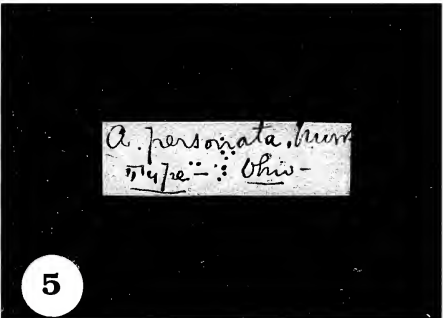 A. personata.
Type – Ohio –
5